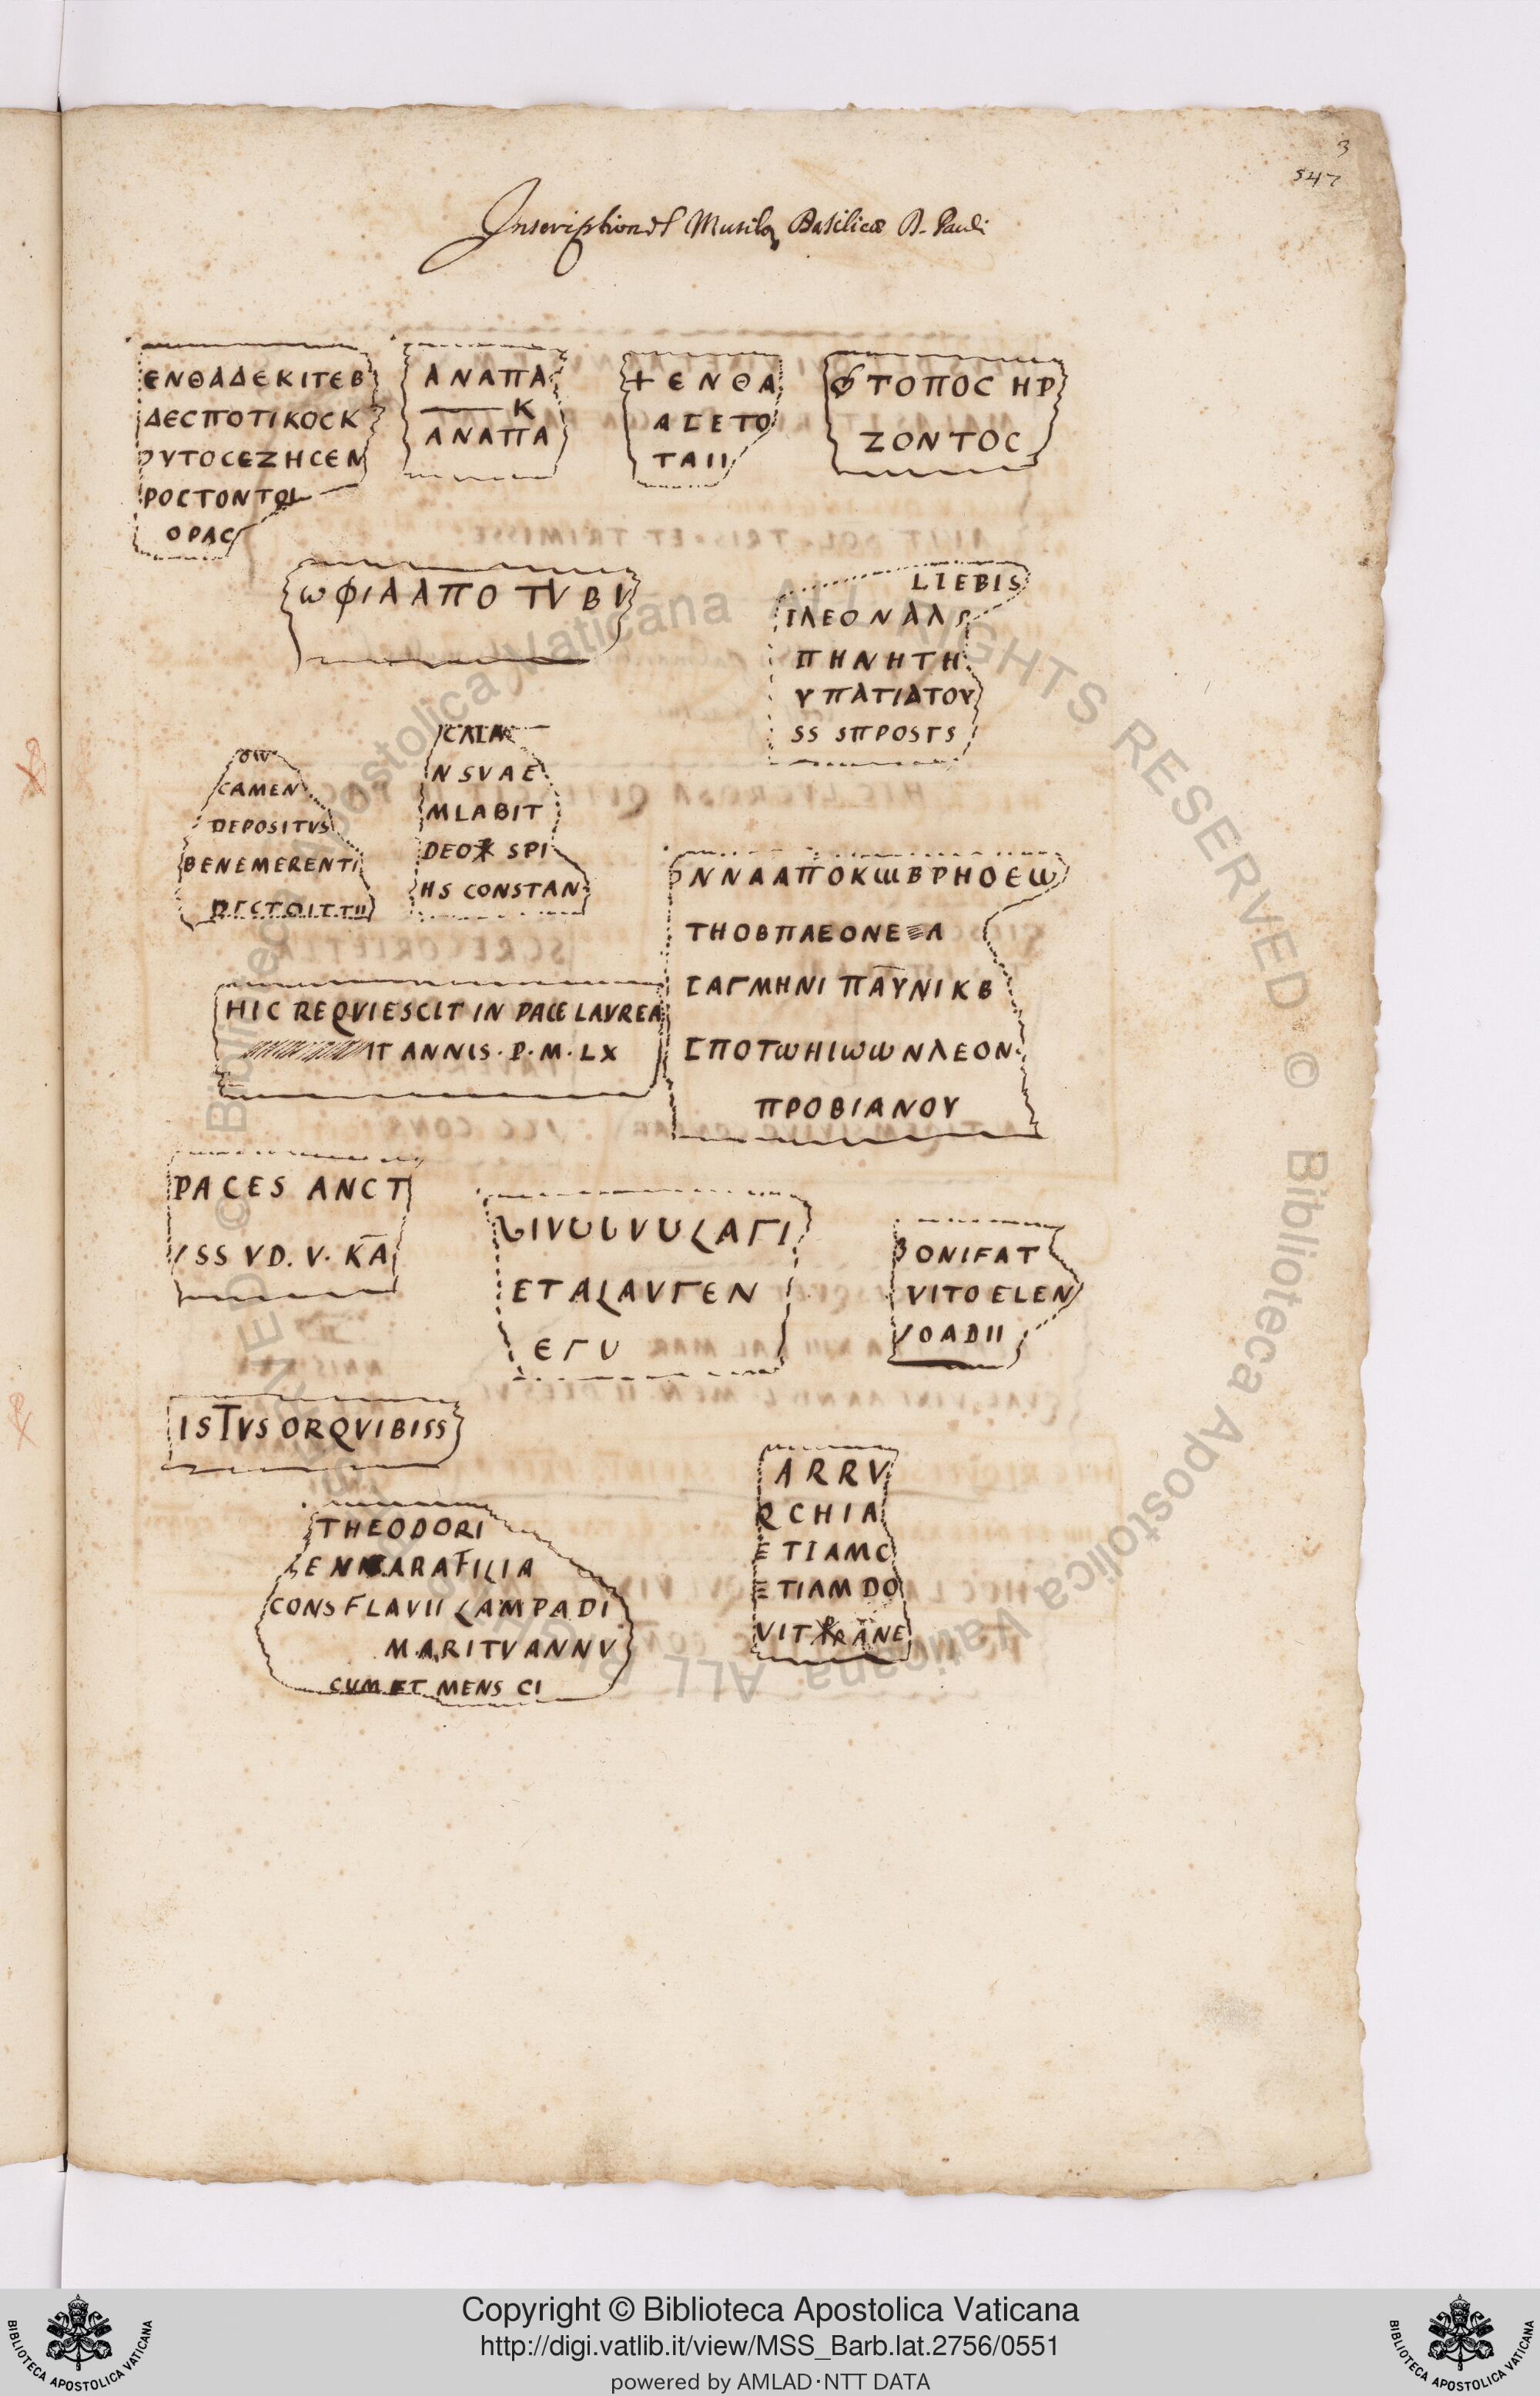 3
547
Inscriptiones Mutilæ Basilicæ B. Pauli
ΕΝΘΑΔΕΚΙΤΕΒ
ΔΕCΠΟΤΙΚΟCΚ
ΟΥΤΟCΕΖΗCΕΝ
ΡΟCΤΟΝΤΟΙ
ΟΡΑC
ΑΝΑΠΑ
Κ
ΑΝΑΠΑ
+ ΕΝΘΑ
ΑΓΕΤΟ
ΤΑΙΙ
ΤΟΠΟC ΗΡ
ΖΟΝΤΟC
ωΦΙΑΑΠΟ ΤVΒV
LIEBIS
ΠΗΝΗΤΗ
ΥΠΑΤΙΑΤΟΥ
SS SΠROSTS
CAMEN
DEPOSITVS
BENEMERENTI
NSVAE
MLABIT
DEO SPI
HS CONSTAN
ΝΝΑΑΠΟΚωΒΡΗΟΕω
ΤΗΟΒΠΛΕΟΝΕ Λ
ΓΑΓΜΗΝΙ ΠΑΥΝΙΚΒ
ΓΠΟΤωΗΙωωΝΛΕΟΝ
ΠΡΟΒΙΑΝΟΥ
HIC REQVIESCIT IN PACE LAVREA
IT ANNIS. P. M. LX
PACES ANCT
SS VD. V. KA
ETALAVΓEN
ΕΓU
BONIFAT
VITO ELEN
OADII
ISTVS ORQVIBISS
THEODORI
ENKARAFILIA
CONS FLAVII LAMPADI
MARITVANNV
CVM ET MENS CI
ARRV
RCHIA
ETIAMC
ETIAMDO
Copyright © Biblioteca Apostolica Vaticana
http://digi.vatlib.it/view/MSS_Barb.lat.2756/0551
powered by AMLAD·NTT DATA
BIBLIOTECA APOSTOLICA VATICANA
BIBLIOTECA APOSTOLICA VATICANA
Biblioteca Apostolica Vaticana ALL RIGHTS RESERVED ©
Biblioteca Apostolica Vaticana ALL RIGHTS RESERVED ©